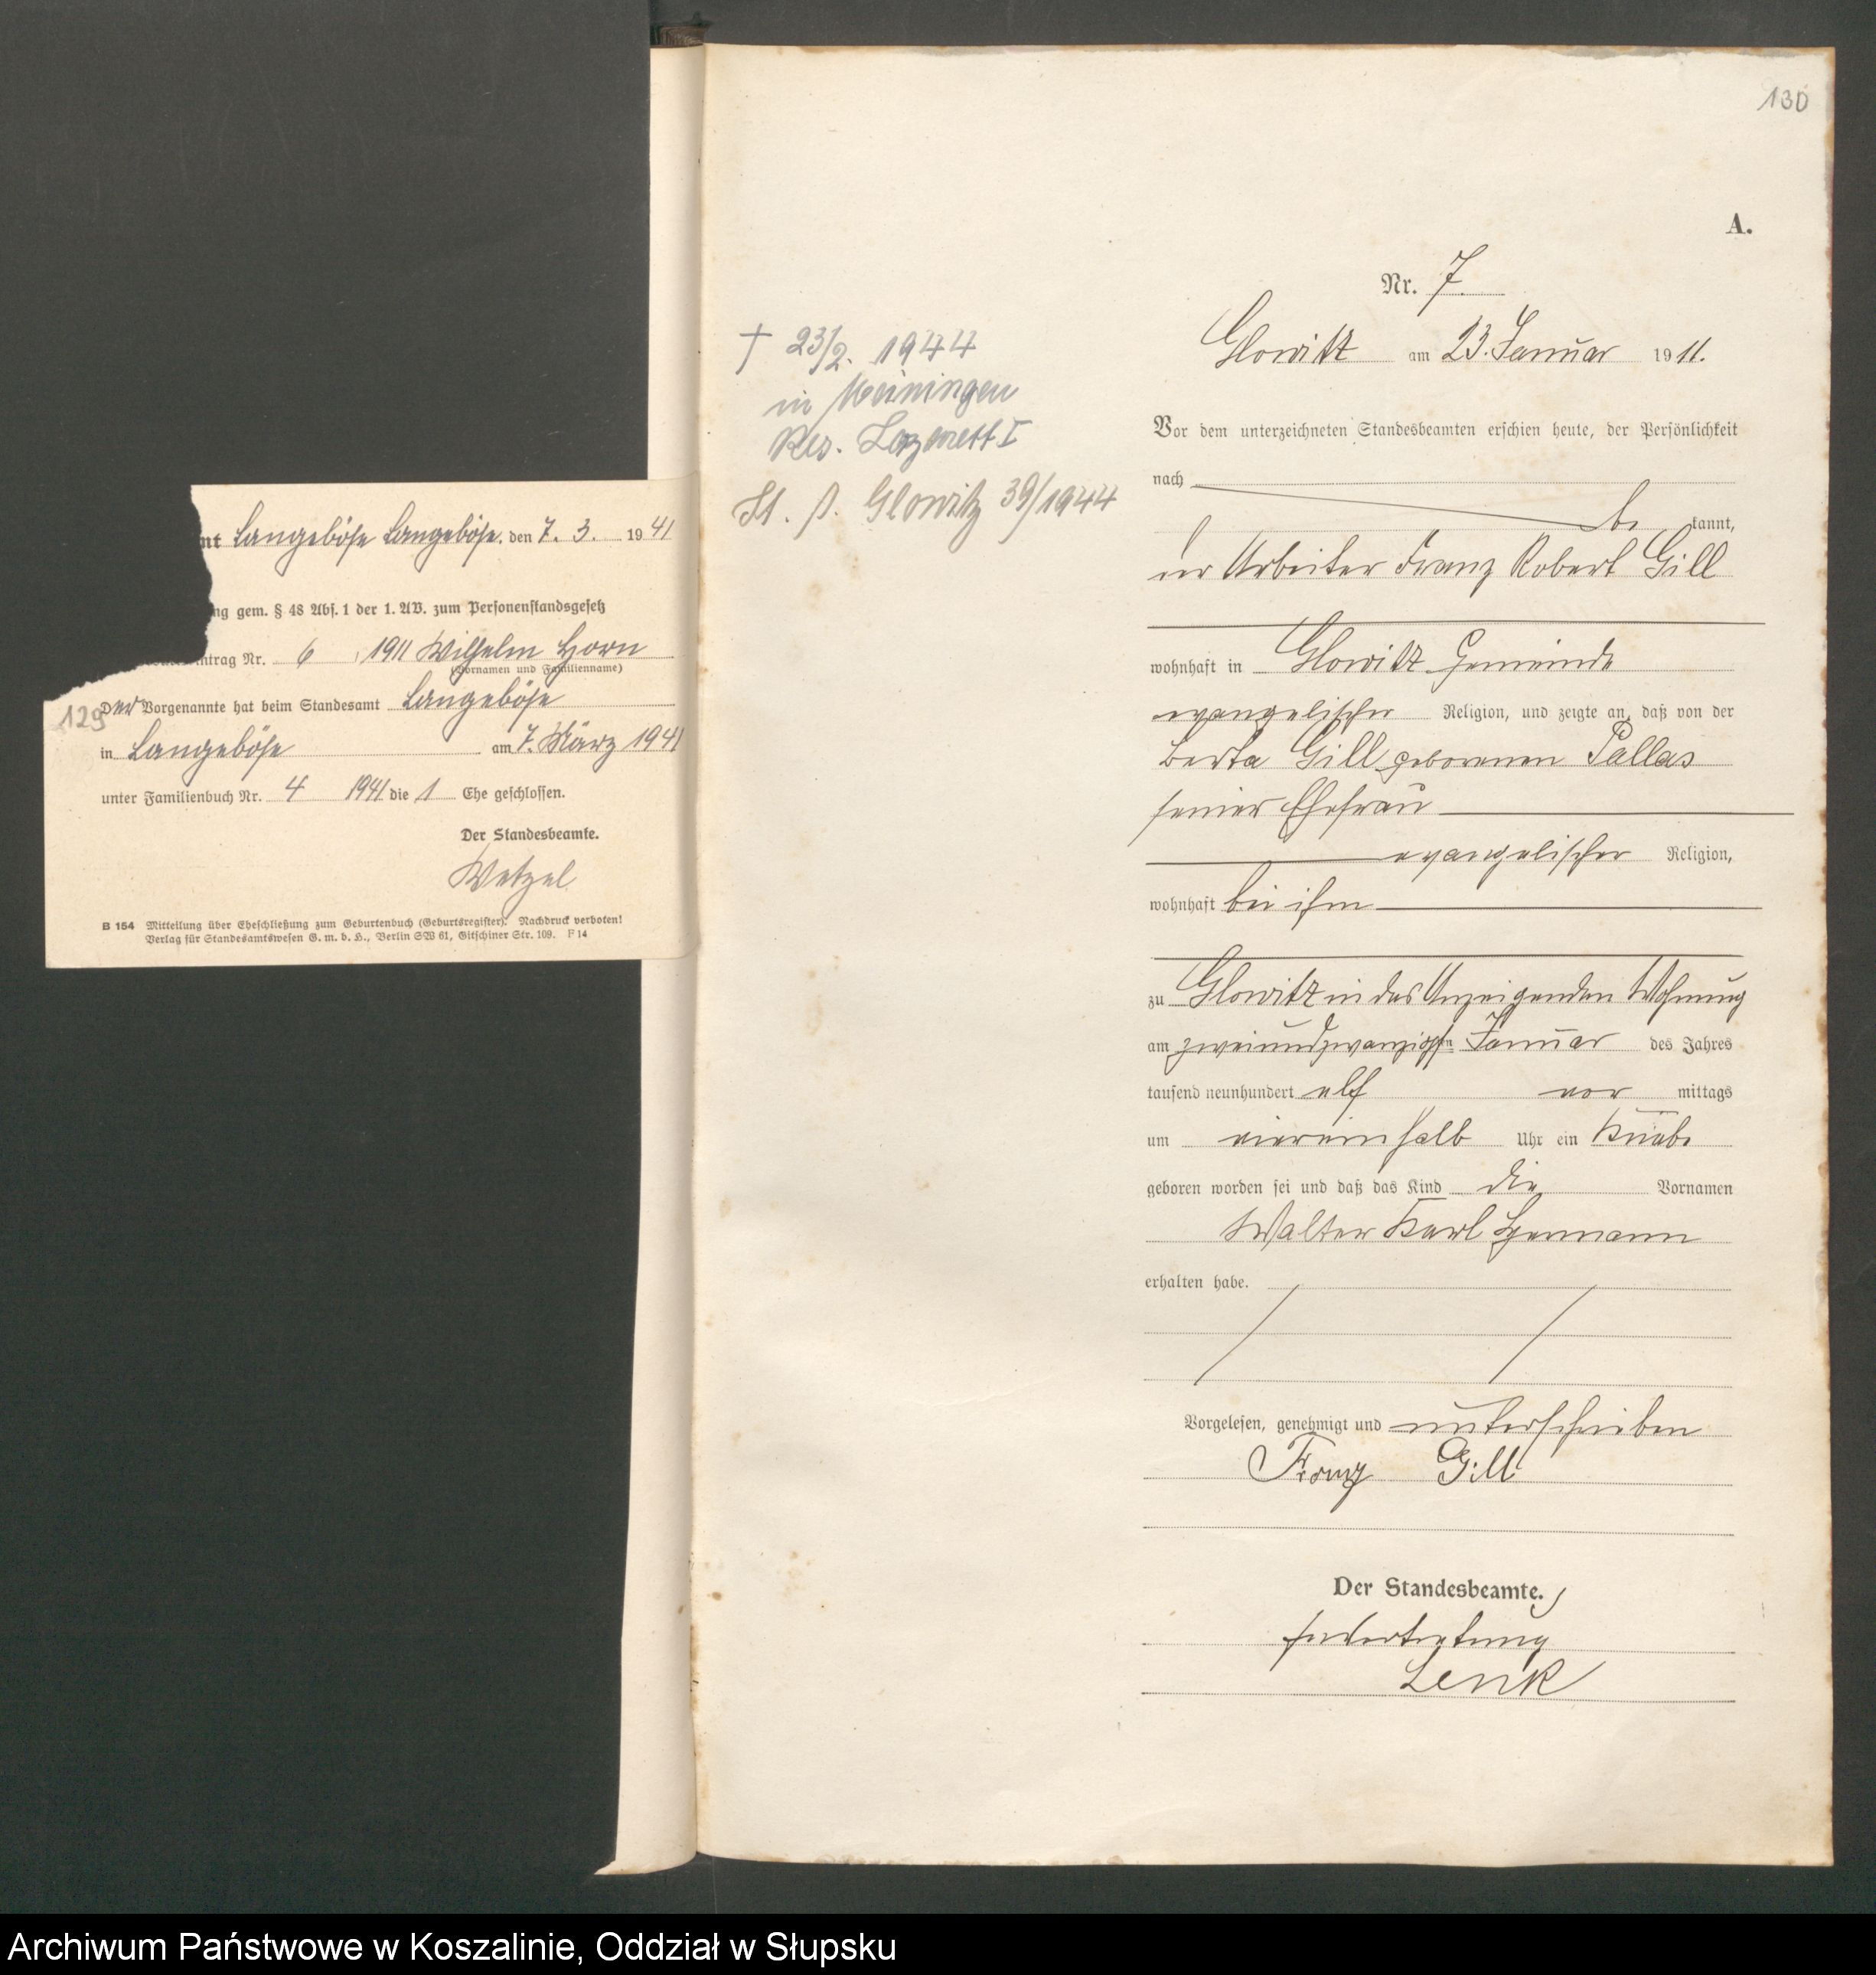 130
A.
Nr. 7.
Glowitz am 23. Januar 1911.
Vor dem unterzeichneten Standesbeamten erschien heute, der Persönlichkeit
nach
be kannt,
der Arbeiter Franz Robert Gill
wohnhaft in Glowitz Gemeinde
evangelischer Religion, und zeigte an, daß von der
Berta Gill geborenen Pallas
seiner Ehefrau
evangelischer Religion,
wohnhaft bei ihm
zu Glowitz in des Anzeigenden Wohnung
am zweiundzwanzigsten Januar des Jahres
tausend neunhundert elf vor mittags
um viereinhalb Uhr ein Knabe
geboren worden sei und daß das Kind die Vornamen
Walter Karl Hermann
erhalten habe.
Vorgelesen, genehmigt und unterschrieben
Franz Gill
Der Standesbeamte.
In Vertretung
Lenk
† 23/2. 1944
in Meiningen
Res. Lazarett I
St. A. Glowitz 39/1944
nt Langeböse Langeböse, den 7. 3. 1941
ng gem. § 48 Abs. 1 der 1. AV. zum Personenstandsgesetz
intrag Nr. 6 , 1911 Wilhelm Horn
(Vornamen und Familienname)
129
Der Vorgenannte hat beim Standesamt Langeböse
in Langeböse am 7. März 1941
unter Familienbuch Nr. 4 1941 die 1 Ehe geschlossen.
Der Standesbeamte.
Wetzel
B 154 Mitteilung über Eheschließung zum Geburtenbuch (Geburtsregister). Nachdruck verboten!
Verlag für Standesamtswesen G. m. b. H., Berlin SW 61, Gitschiner Str. 109. F 14
Archiwum Państwowe w Koszalinie, Oddział w Słupsku